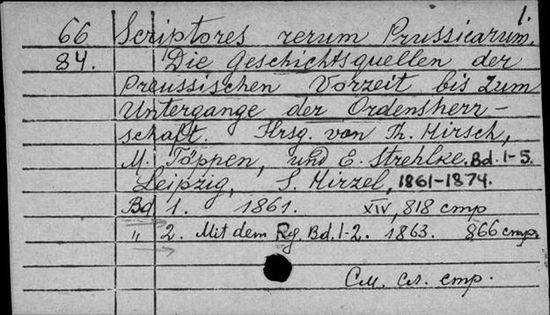 1.
66 Scriptores rerum Prussicarum.
84. Die Geschichtsquellen der
Preussischen Vorzeit bis zum
Untergange der Ordensherr-
schaft. Hrsg. von Th. Hirsch,
M. Töppen, und E. Strehlke. Bd. 1-5.
Leipzig, S. Hirzel, 1861-1874.
Bd 1. 1861. XIV, 818 стр
" 2. Mit dem Rg. Bd. 1-2. 1863. 866 стр.
См. сл. стр.